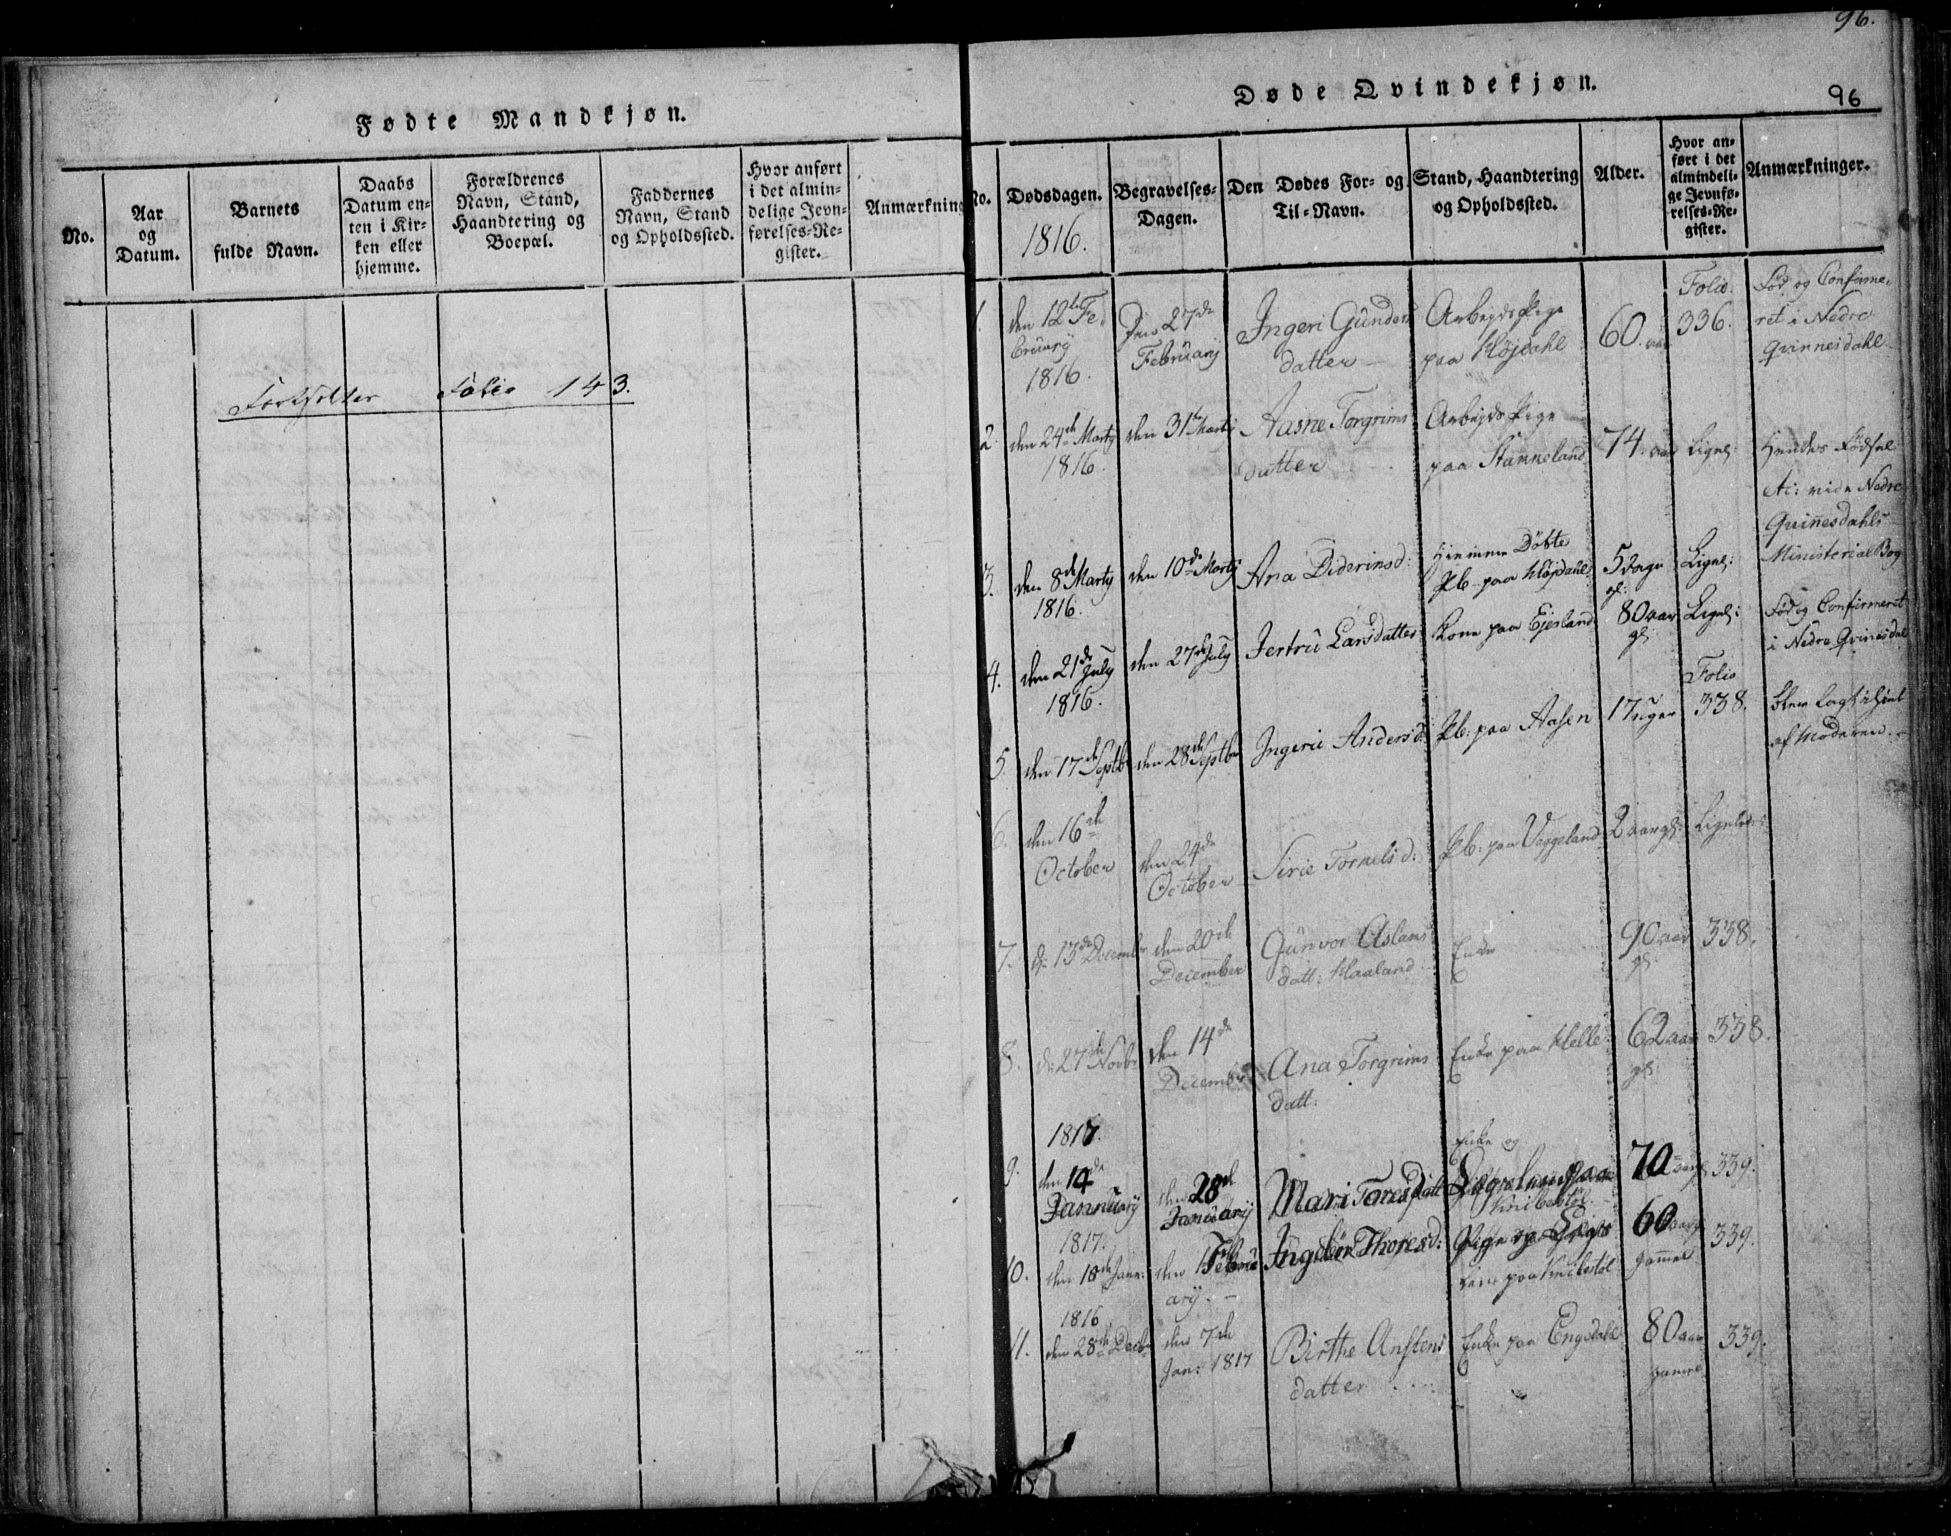 Fødte Mandkjøn.
No.
Aar
og
Datum.
Barnets
fulde Navn.
Daabs
Datum en-
ten i Kir-
ken eller
hjemme.
Forældrenes
Navn, Stand,
Haandtering og
Boepæl.
Faddernes
Navn, Stand
og Opholdssted.
Hvor anført
i det almin-
delige Jevn-
førelses-Re-
gister.
Anmærkning
Folio 143.
96.
Døde Qvindekjøn.
96
No.
Dødsdagen.
1816.
Begravelses-
Dagen.
Den Dødes For- og
Til-Navn.
Stand, Haandtering
og Opholdssted.
Alder.
Hvor an-
ført i det
almindeli-
ge Jevnfø-
relses-Re-
gister.
Anmærkninger.
1.
den 12te Fe-
bruary
1816.
27de
February
Ingeri Gunders
datter
Arbeidspige
paa Højdahl
60. aar
Folio.
336.
Fød og Confirme-
ret i Nedre
Qvinnesdahl
2
den 24de Marty
1816.
den 31te Marti
Aasne Torgrims
datter
Arbeidspige
paa Stamneland
74. aar
Ligel:
Hendes Fødsel
etc: vide Nedre
Quinnesdahls
Ministerial Bog
3.
den 8de Marty
1816.
den 10de Marty
Ana Diderinsd:
Hiemme Døbte
Pb. paa Højdahl
5 dage
gl:
Ligel:
4.
den 21de July
1816.
den 27de July
Jertru Larsdatter
Kone paa Ejesland
80 aar
gl:
Ligel:
Fød og Confirmeret
i Nedre Qvinesdal
5
den 17de Septbr
den 28de Septbr
Ingerie Andersd:
Pb: paa Aasen
17 uger
Folio
338.
blev lagt ihiel
af Moderen.
6.
den 16de
October
den 24de
October
Sirie Tornelsd:
Pb: paa Vaggeland
2 aar gl:
Ligeled:
7.
d: 13de Decembr
den 20de
December
Gunvor Aslans
datt: Haaland
Enke
90 aar
gl:
338.
8.
d: 27de Novbr
den 14de
December
Ana Torgrims
datt:
Enke paa Helle
62 aar
gl:
338.
1817.
9.
den 14de
Januuary
den 28de
January
Mari Toresdatt
Enke og
70 aar gl
339.
1817.
10.
den 18de Janr:
den 1 Febru
ary.
Ingebør Thoresd:
Pige og
paa Knibestøl
60 aar
gammel
339.
1816
11.
den 28de Decbr
den 7de
Jan: 1817
Birthe Anstens
datter
Enke paa Engedahl
80 aar
gamel
339.